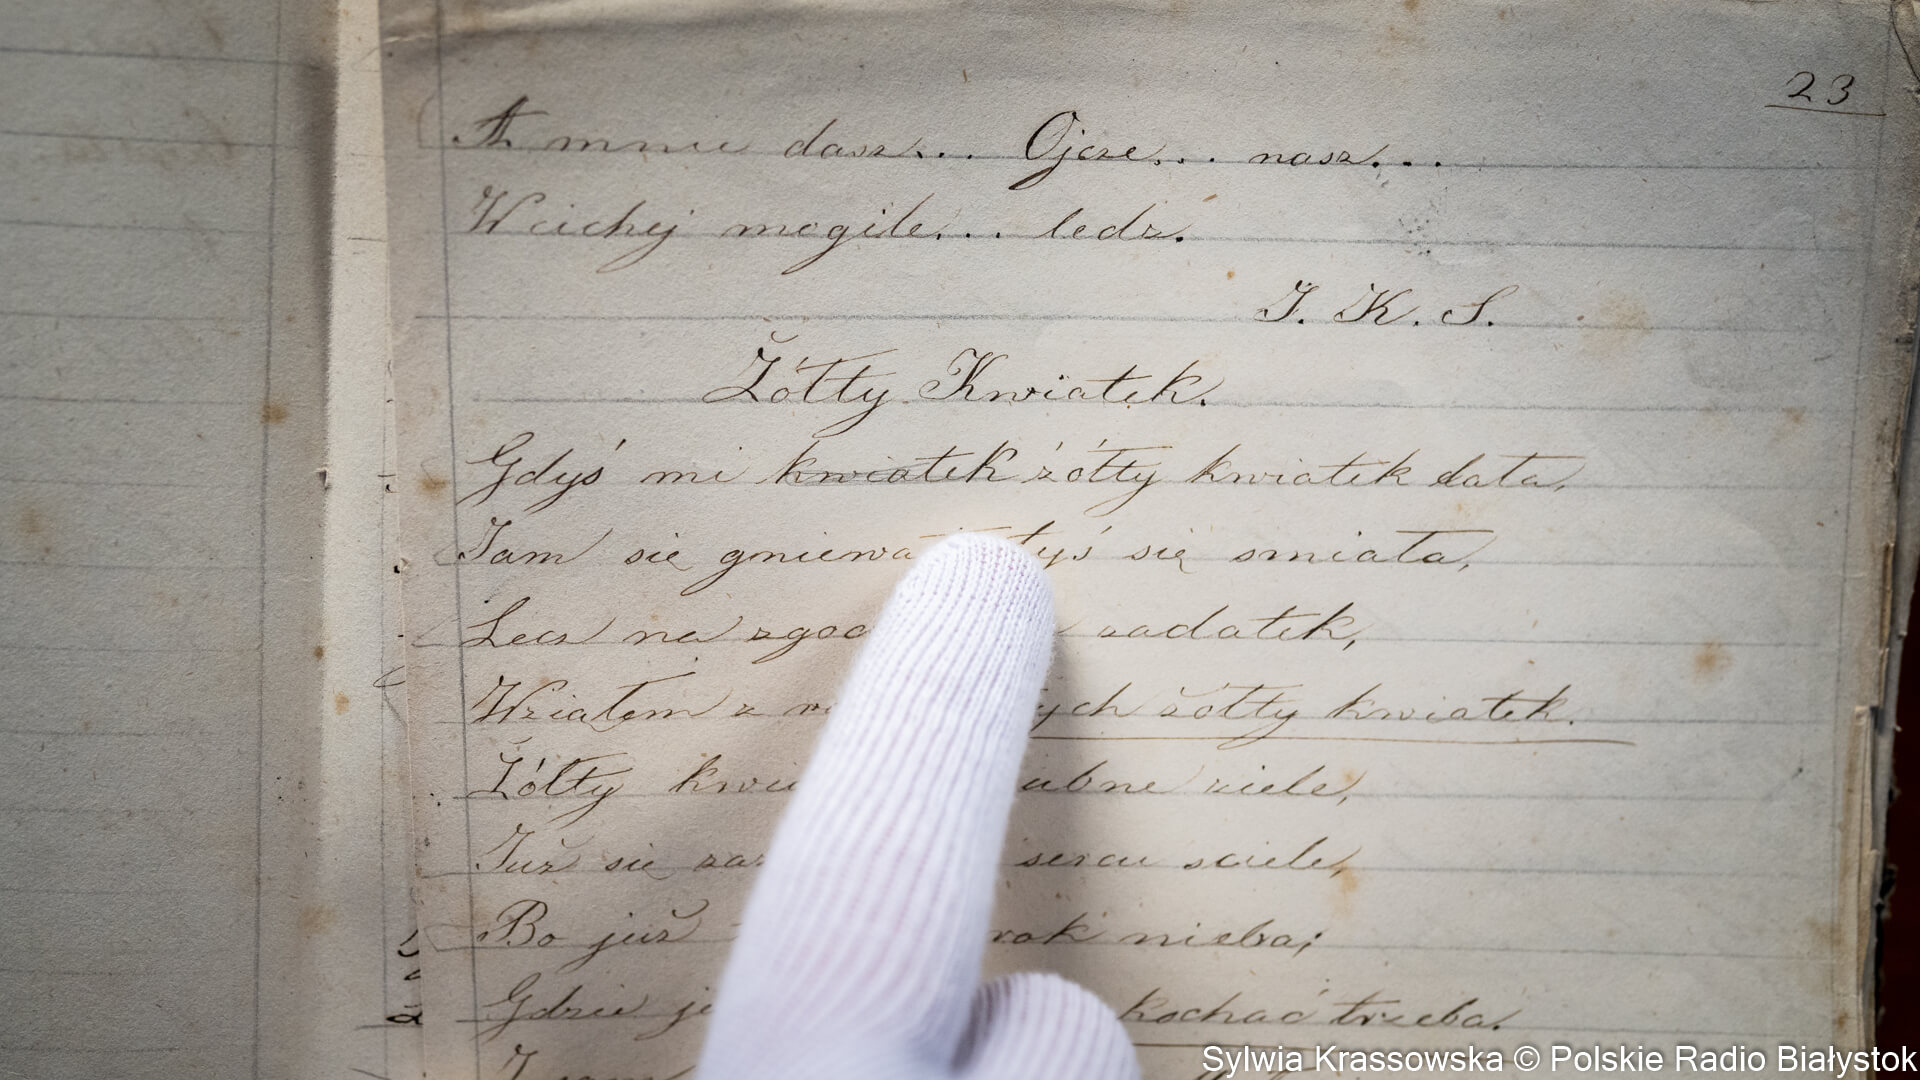 23
A mnie dasz... Ojcze... nasz...
W cichej mogile... ledz.
J. K. S.
Żółty Kwiatek.
Gdyś mi kwiatek żółty kwiatek dała,
Jam się gniewał tyś się smiała,
Lecz na zadatek,
Wziąłem z żółty kwiatek.
Żółty ziele,
Już się sercu sciele,
Bo już nieba;
Gdzie kochać trzeba.
Sylwia Krassowska © Polskie Radio Białystok